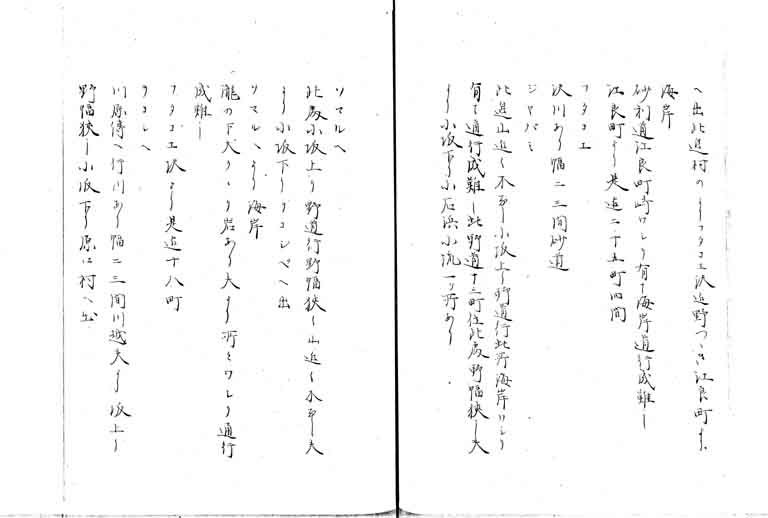 へ出此辺村のよりフタコエ沢迄野つゝき江良町よ
海岸
砂利道江良町崎ワシリ有て海岸道行成難し
江良町より是迄二十五町四間
フタコエ
沢川あり幅二三間砂道
ジヤバミ
此辺山近く不平小坂上り野道行此所海岸ワシリ
有て通行成難し此野道十三町位此処野幅狭し夫
より小坂下り小石浜小流一ツ所あり
ソマルヘ
此処小坂上り野道行野幅狭く山近く不平夫
より小坂下りリコレベへ出
ソマルヘより海岸
瀧の下大クヽり岩あり夫より所とワシリ通行
成難し
フタゴエ沢より是迄十八町
リコレヘ
川原傳へ行川あり幅二三間川越夫より坂上り
野幅狭し小坂下り原口村へ出